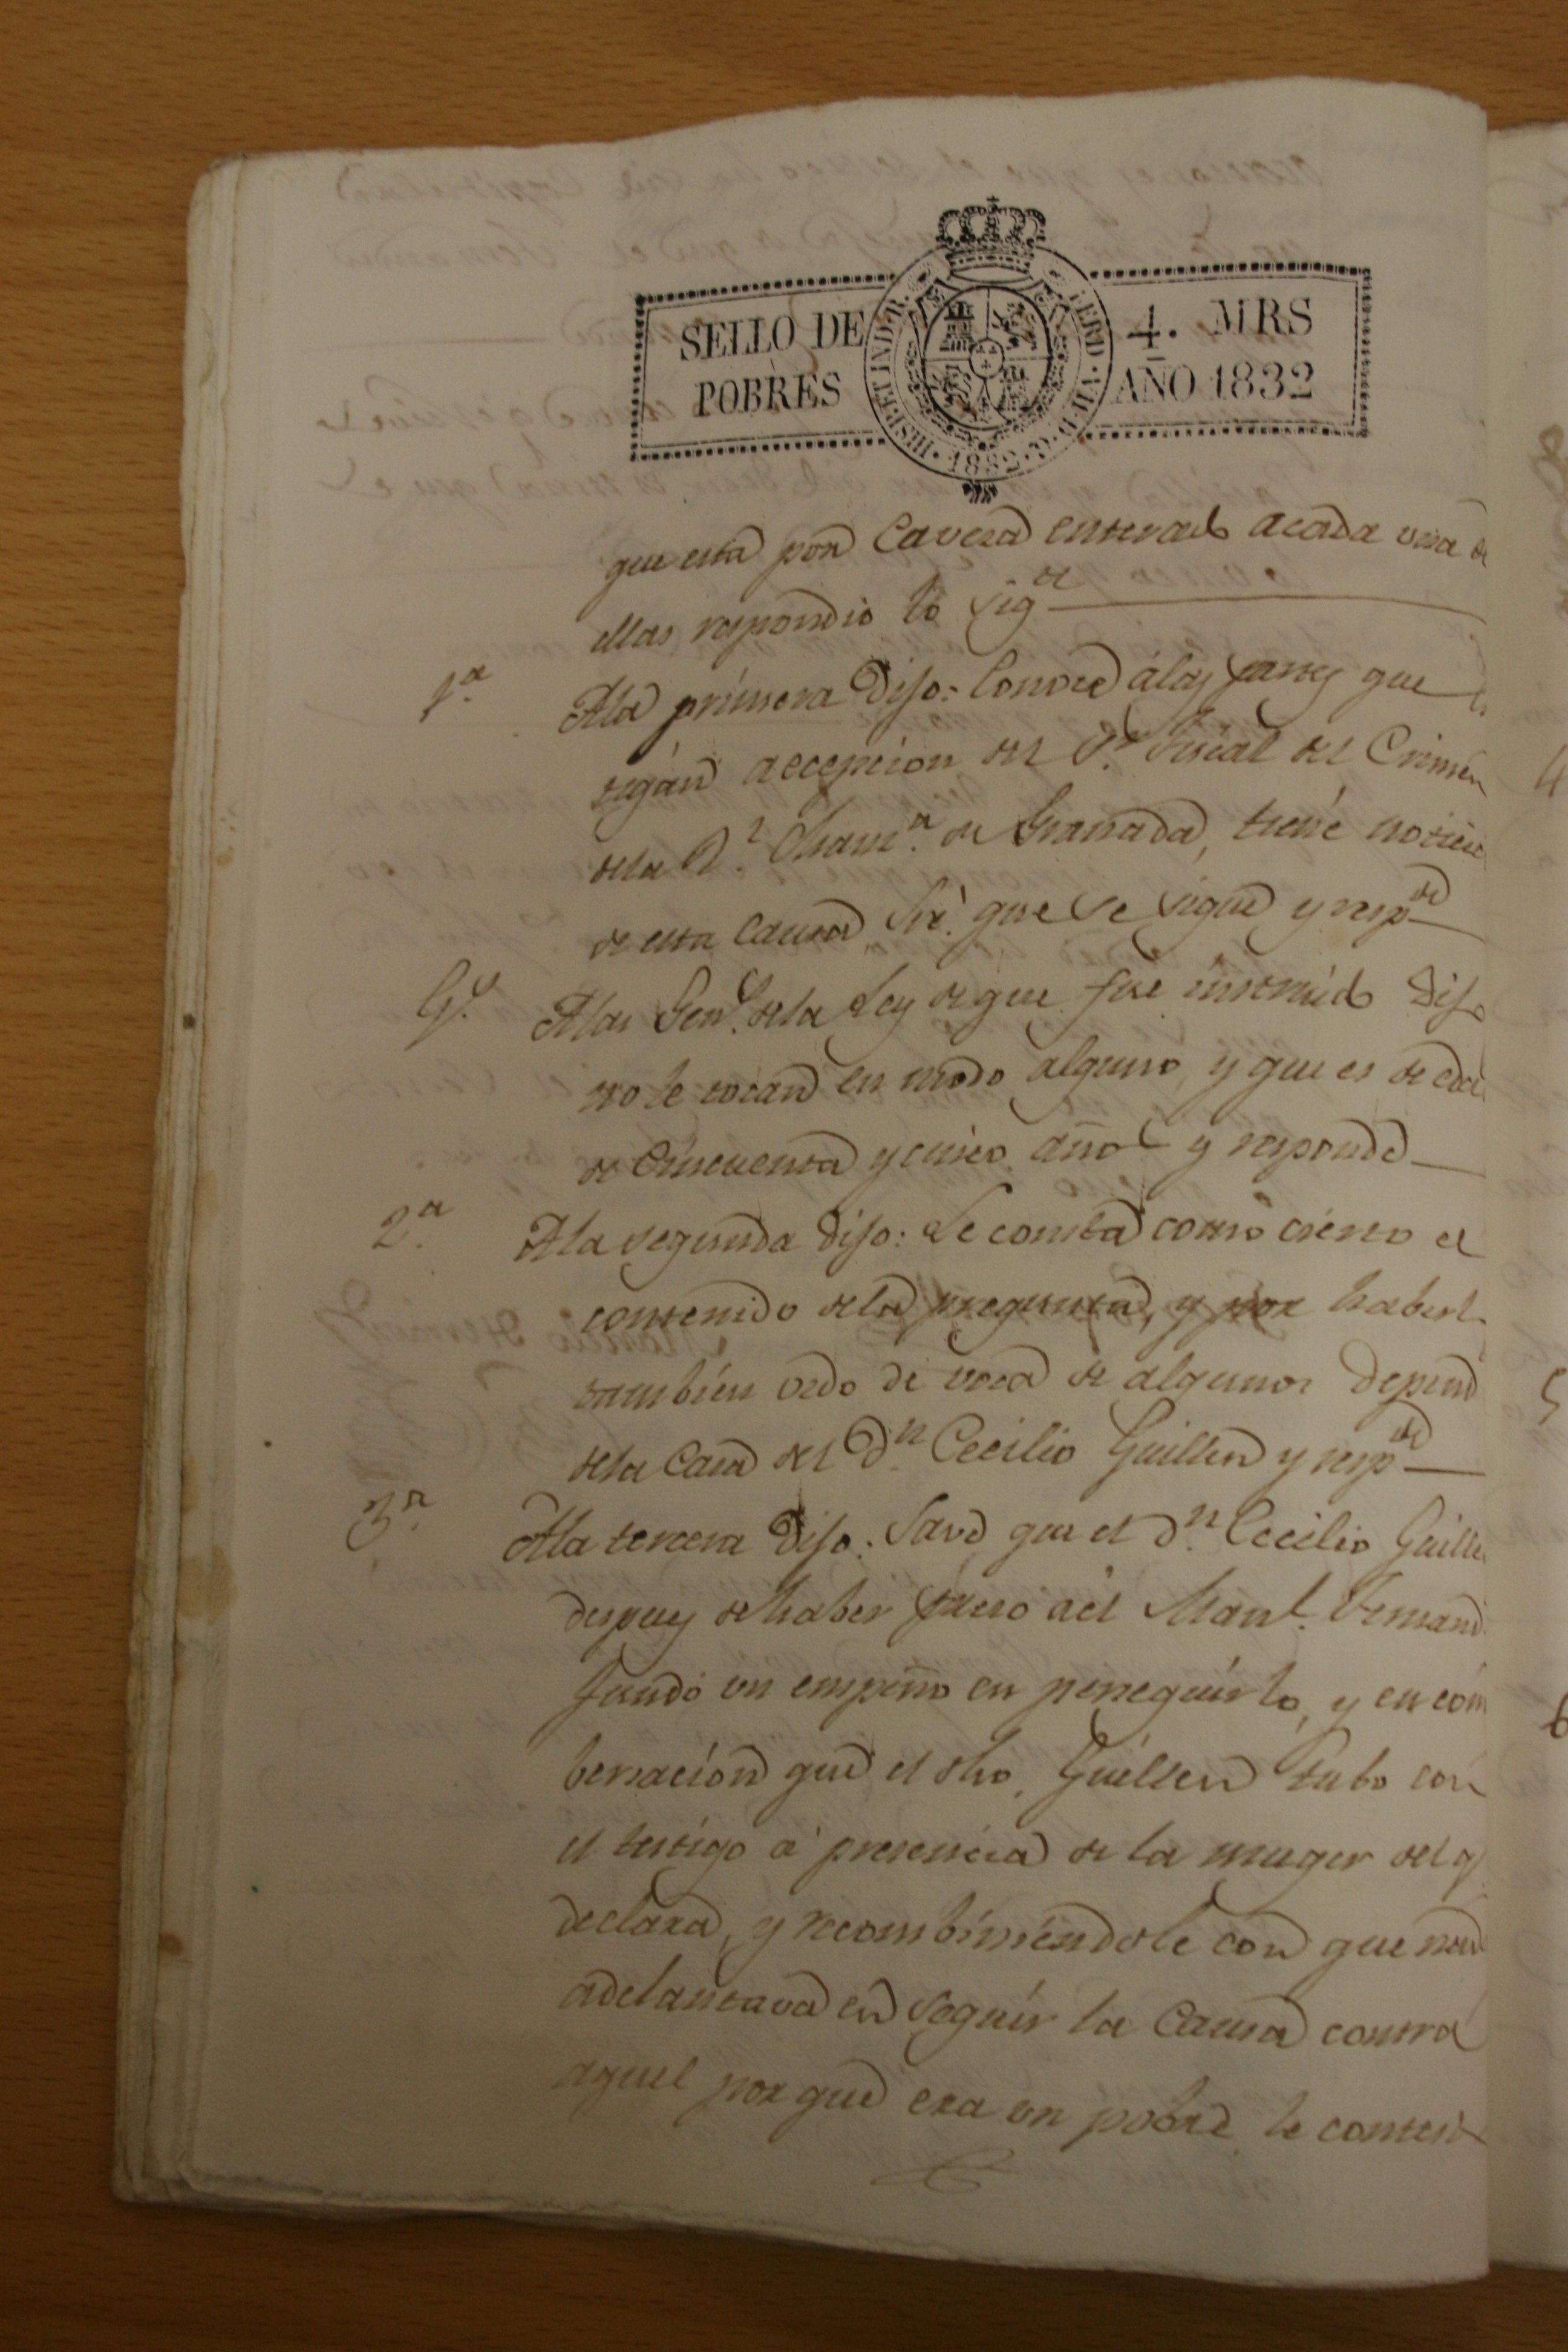 SELLO DE
POBRES
HISP. ET IND. R. FERD. VII D. G. 1832
4. MRS
AÑO 1832
que esta por Caveza enterado acada una de
ellas respondio lo sig.te
1.a
Ala primera Dijo: Conoce álas partes que
litigan aecepcion del S.r Fiscal del Crimen
dela R.l Chanc.a de Granada, tiene noticia
de esta Causa que se sigue y resp.de
G.s
Alas Gen.s dela Ley de que fue instruido Dijo
no le tocan en modo alguno, y que es de edad
de Cincuenta y cinco años y responde
2.a
Ala segunda Dijo: Le consta como cierto el
contenido dela pregunta, y por haberl
tambien oido de voca de algunos depend
dela Casa del D.n Cecilio Guillen y resp.de
3.a
Ala tercera Dijo: Save que el D.n Cecilio Guille
despues dehaber preso aél Man.l Fernand
fundó un empeño en perseguirlo, y en com
bersacion que el dho. Guillen tubo con
el testigo á presencia de la muger del q
declara, y recombiniendole con que nad
adelantava en seguir la Causa contra
aquel por que era un pobre le contest